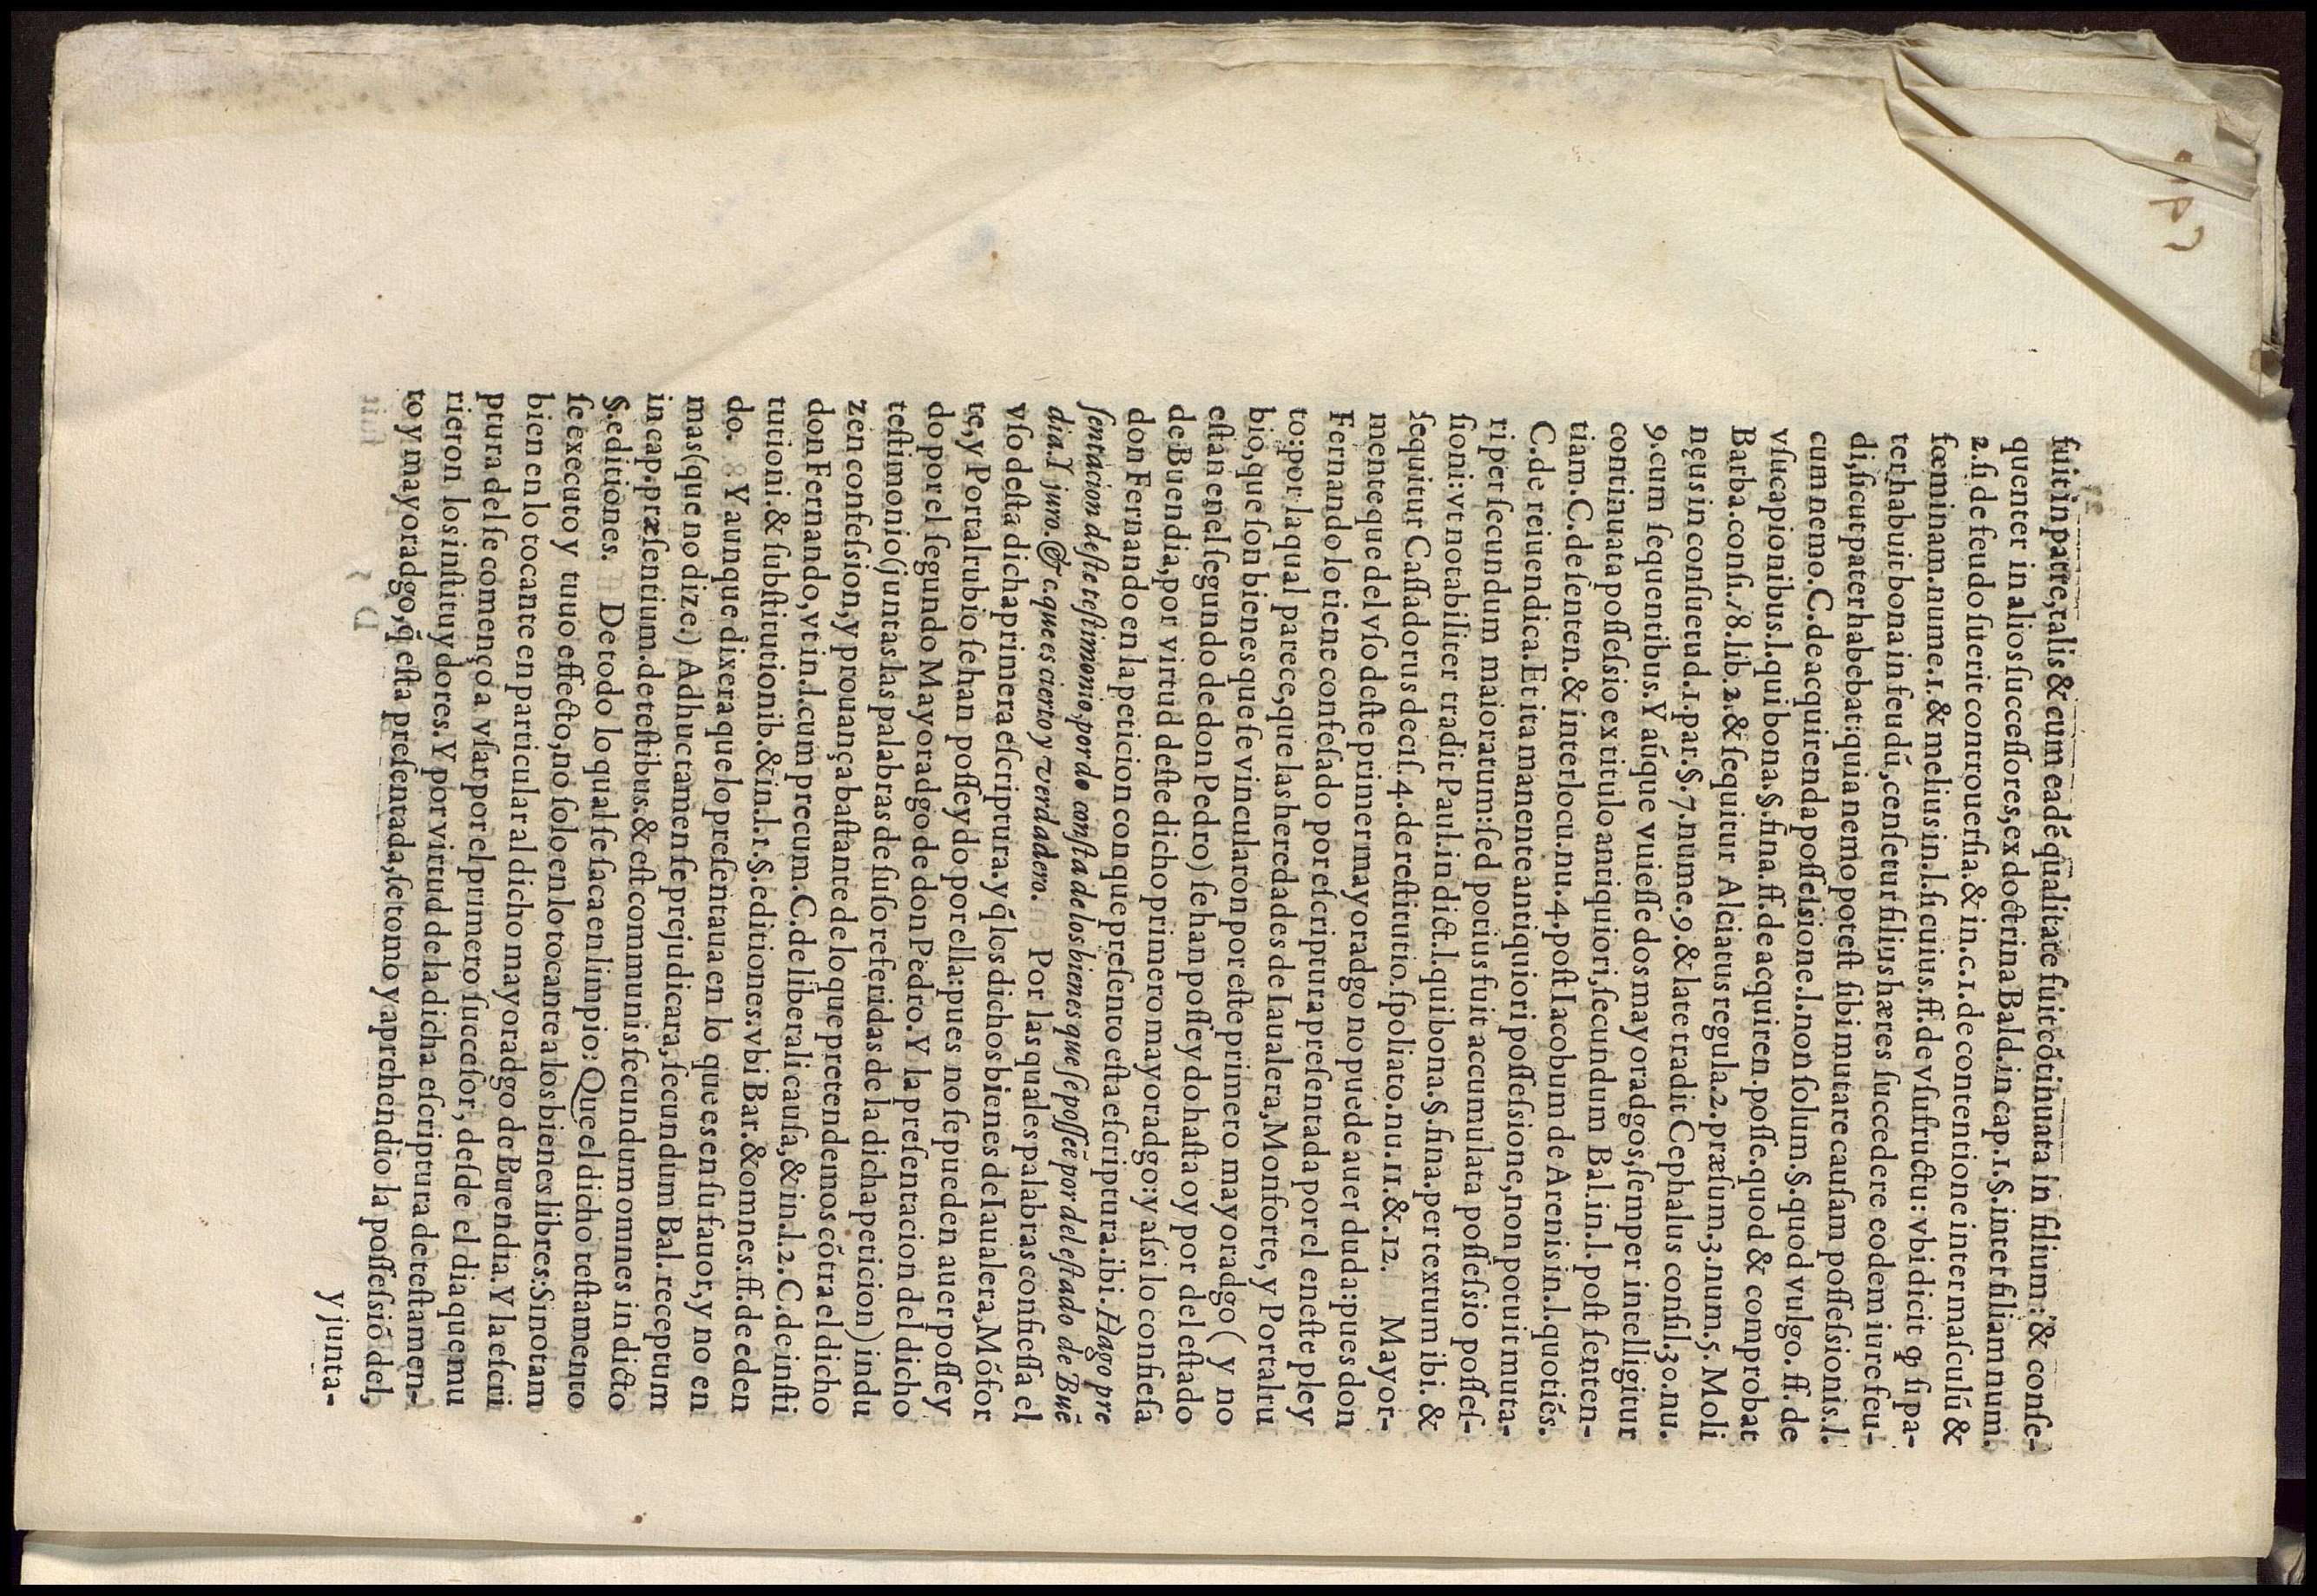 fuit in patre, talis & cum eadē qualitate fuit cōtinuata in filium: & conſe-
quenter in alios ſucceſſores, ex doctrina Bald. in cap. 1. §. inter filiam num.
2. ſi de feudo fuerit controuerſia. & in. c. 1. de contentione inter maſculū &
fœminam. nume. 1. & melius in. l. ſi cuius. ff. de vſufructu: vbi dicit ꝙ ſi pa-
ter habuit bona in feudū, cenſetur filius hæres ſuccedere eodem iure feu-
di, ſicut pater habebat: quia nemo poteſt ſibi mutare cauſam poſſeſsionis. l.
cum nemo. C. de acquirenda poſſeſsione. l. non ſolum. §. quod vulgo. ff. de
vſucapionibus. l. qui bona. §. fina. ff. de acquiren. poſſe. quod & comprobat
Barba. conſi. 18. lib. 2. & ſequitur Alciatus regula. 2. præſum. 3. num. 5. Moli
nęus in conſuetud. 1. par. §. 7. nume. 9. & late tradit Cephalus conſil. 30. nu.
9. cum ſequentibus. Y aūque vuieſſe dos mayoradgos, ſemper intelligitur
continuata poſſeſsio ex titulo antiquiori, ſecundum Bal. in. l. poſt ſenten-
tiam. C. de ſenten. & interlocu. nu. 4. poſt Iacobum de Arenis in. l. quotiēs.
C. de reiuendica. Et ita manente antiquiori poſſeſsione, non potuit muta-
ri per ſecundum maioratum: ſed potius fuit accumulata poſſeſsio poſſeſ-
ſioni: vt notabiliter tradit Paul. in dict. l. qui bona. §. fina. per textum ibi. &
ſequitur Caſſadorus deciſ. 4. de reſtitutio. ſpoliato. nu. 11. &. 12. Mayor-
mente que del vſo deſte primer mayoradgo no puede auer duda: pues don
Fernando lo tiene confeſado por eſcriptura preſentada por el en eſte pley
to: por la qual parece, que las heredades de Iaualera, Monforte, y Portalru
bio, que ſon bienes que ſe vincularon por eſte primero mayoradgo (y no
eſtan en el ſegundo de don Pedro) ſe han poſſeydo haſta oy por del eſtado
de Buendia, por virtud deſte dicho primero mayoradgo: y aſsi lo confieſa
don Fernando en la peticion con que preſento eſta eſcriptura. ibi. Hago pre
ſentacion deſte teſtimonio, por do conſta de los bienes que ſe poſſeē por del eſtado de Buē
dia. Y juro. &c. que es cierto y verdadero. Por las quales palabras confieſſa el
vſo deſta dicha primera eſcriptura. y q̄ los dichos bienes de Iaualera, Mōfor
te, y Portalrubio ſe han poſſeydo por ella: pues no ſe pueden auer poſſey
do por el ſegundo Mayoradgo de don Pedro. Y la preſentacion del dicho
teſtimonio (juntas las palabras de ſuſo referidas de la dicha peticion) indu
zen confeſsion, y prouança baſtante de lo que pretendemos cōtra el dicho
don Fernando, vt in. l. cum precum. C. de liberali cauſa, & in. l. 2. C. de inſti
tutioni. & ſubſtitutionib. & in. l. 1. §. editiones. vbi Bar. & omnes. ff. de eden
do. Y aunque dixera que lo preſentaua en lo que es en ſu fauor, y no en
mas (que no dize:) Adhuc tamen ſe prejudicara, ſecundum Bal. receptum
in cap. præſentium. de teſtibus. & eſt communis ſecundum omnes in dicto
§. editiones. De todo lo qual ſe ſaca en limpio: Que el dicho teſtamento
ſe executo y tuuo effecto, no ſolo en lo tocante a los bienes libres: Sino tam
bien en lo tocante en particular al dicho mayoradgo de Buendia. Y la eſcri
ptura del ſe començo a vſar por el primero ſucceſor, deſde el dia que mu
rieron los inſtituydores. Y por virtud de la dicha eſcriptura de teſtamen-
to y mayoradgo, q̄ eſta preſentada, ſe tomo y aprehendio la poſſeſsiō del,
y junta-